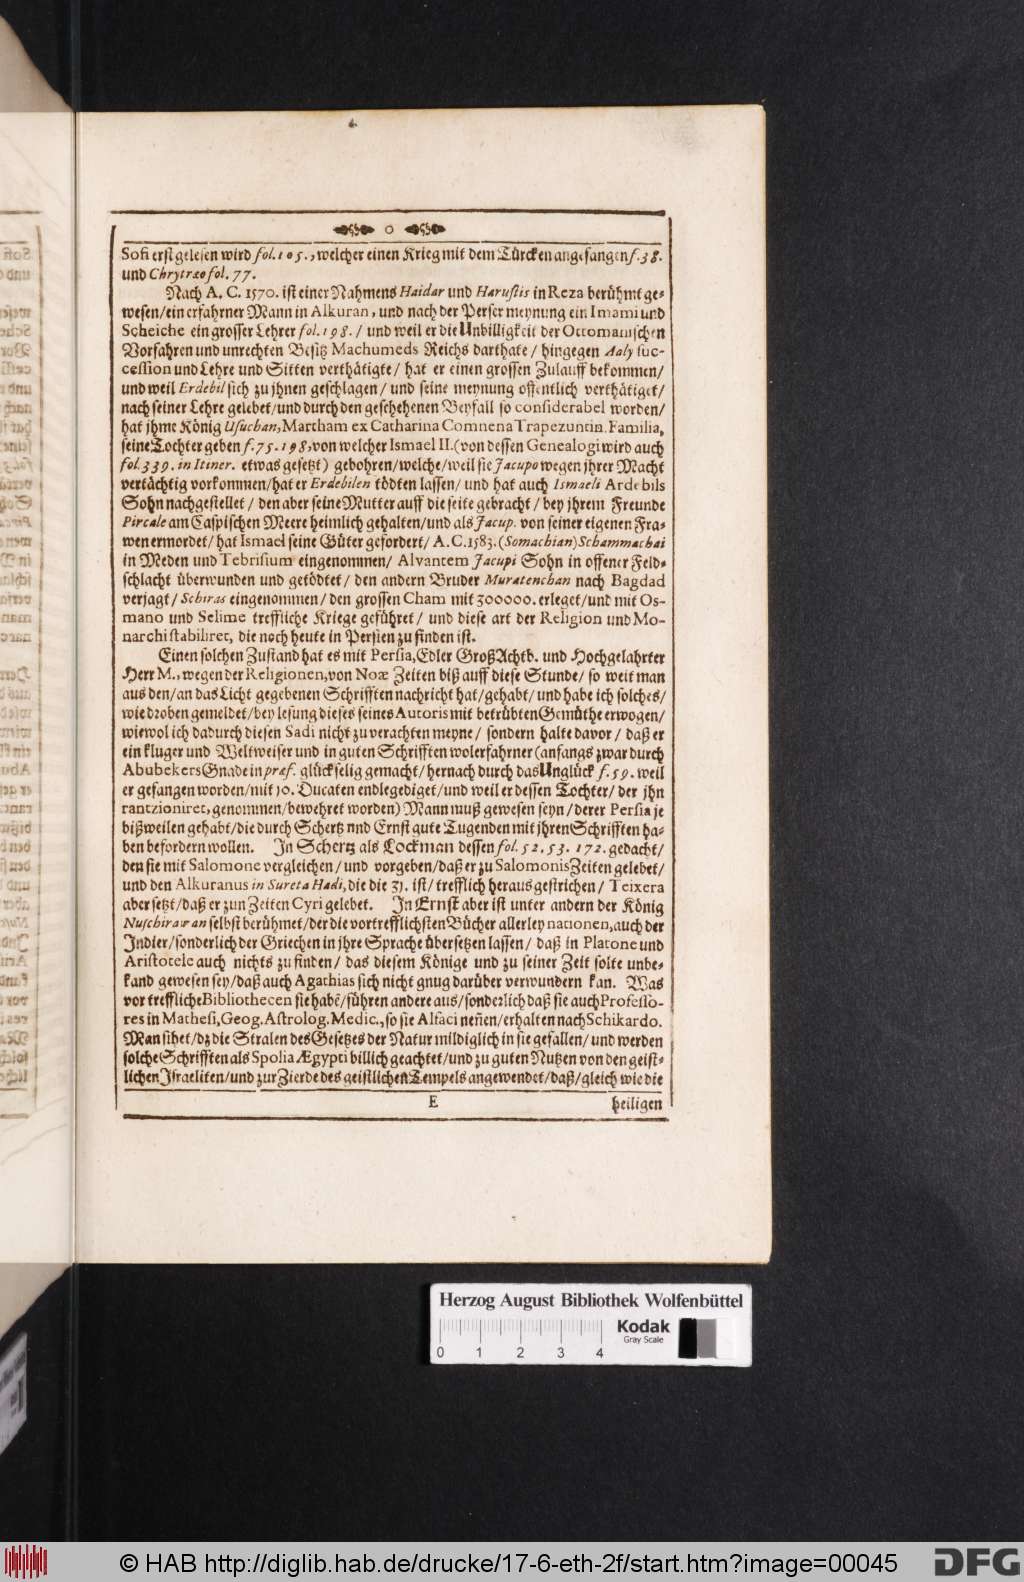 Sofi erst gelesen wird fol. 105., welcher einen Krieg mit dem Türcken angefangen f. 38.
und Chrytræo fol. 77.
Nach A. C. 1570. ist einer Nahmens Haidar und Harustis in Reza berühmt ge-
wesen/ ein erfahrner Mann in Alkuran, und nach der Perser meynung ein Imami und
Scheiche ein grosser Lehrer fol. 198. / und weil er die Unbilligkeit der Ottomanischen
Vorfahren und unrechten Besitz Machumeds Reichs darthate / hingegen Aaly suc-
cession und Lehre und Sitten verthätigte / hat er einen grossen Zulauff bekommen/
und weil Erdebil sich zu jhnen geschlagen / und seine meynung offentlich verthätiget/
nach seiner Lehre gelebet/ und durch den geschehenen Beyfall so considerabel worden/
hat jhme König Usuchan, Martham ex Catharina Comnena Trapezuntin. Familia,
seine Tochter geben f. 75. 198, von welcher Ismael II. (von dessen Genealogi wird auch
fol. 339. in Itiner. etwas gesetzt) gebohren/ welche/ weil sie Jacupo wegen jhrer Macht
vertächtig vorkommen/ hat er Erdebilen tödten lassen/ und hat auch Ismaeli Ardebils
Sohn nachgestellet / den aber seine Mutter auff die seite gebracht / bey jhrem Freunde
Pircale am Caspischen Meere heimlich gehalten/ und als Jacup. von seiner eigenen Fra-
wen ermordet/ hat Ismael seine Güter gefordert/ A. C. 1583. (Somachian) Schammachai
in Meden und Tebrisium eingenommen/ Alvantem Jacupi Sohn in offener Feld-
schlacht überwunden und getödtet / den andern Bruder Muratenchan nach Bagdad
verjagt / Schiras eingenommen / den grossen Cham mit 300000. erleget/ und mit Os-
mano und Selime treffliche Kriege geführet / und diese art der Religion und Mo-
narchi stabiliret, die noch heute in Persien zu finden ist.
Einen solchen Zustand hat es mit Persia, Edler GroßAchtb. und Hochgelahrter
Herr M., wegen der Religionen, von Noæ Zeiten biß auff diese Stunde/ so weit man
aus den/ an das Licht gegebenen Schrifften nachricht hat/ gehabt/ und habe ich solches/
wie droben gemeldet/ bey lesung dieses seines Autoris mit betrübten Gemüthe erwogen/
wiewol ich dadurch diesen Sadi nicht zu verachten meyne / sondern halte davor / daß er
ein kluger und Weltweiser und in guten Schrifften wolerfahrner (anfangs zwar durch
Abubekers Gnade in præf. glückselig gemacht/ hernach durch das Unglück f. 59. weil
er gefangen worden/ mit 10. Ducaten endlegediget/ und weil er dessen Tochter/ der jhn
rantzioniret, genommen/ bewehret worden) Mann muß gewesen seyn / derer Persia je
bißweilen gehabt/ die durch Schertz nnd Ernst gute Tugenden mit jhren Schrifften ha-
ben befordern wollen. In Schertz als Lockman dessen fol. 52. 53. 172. gedacht/
den sie mit Salomone vergleichen / und vorgeben/ daß er zu Salomonis Zeiten gelebet/
und den Alkuranus in Sureta Hadi, die die 31. ist / trefflich heraus gestrichen / Teixera
aber setzt/ daß er zun Zeiten Cyri gelebet. In Ernst aber ist unter andern der König
Nuschirawan selbst berühmet/ der die vortrefflichsten Bücher allerley nationen, auch der
Indier/ sonderlich der Griechen in jhre Sprache übersetzen lassen / daß in Platone und
Aristotele auch nichts zu finden / das diesem Könige und zu seiner Zeit solte unbe-
kand gewesen sey/ daß auch Agathias sich nicht gnug darüber verwundern kan. Was
vor treffliche Bibliothecen sie habē/ führen andere aus/ sonderlich daß sie auch Professo-
res in Mathesi, Geog. Astrolog. Medic., so sie Alfaci neñen/ erhalten nach Schikardo.
Man sihet/ dz die Stralen des Gesetzes der Natur mildiglich in sie gefallen/ und werden
solche Schrifften als Spolia Ægypti billich geachtet/ und zu guten Nutzen von den geist-
lichen Israeliten/ und zur Zierde des geistlichen Tempels angewendet/ daß/ gleich wie die
E heiligen
Herzog August Bibliothek Wolfenbüttel
Kodak
Gray Scale
0 1 2 3 4
© HAB http://diglib.hab.de/drucke/17-6-eth-2f/start.htm?image=00045
DFG